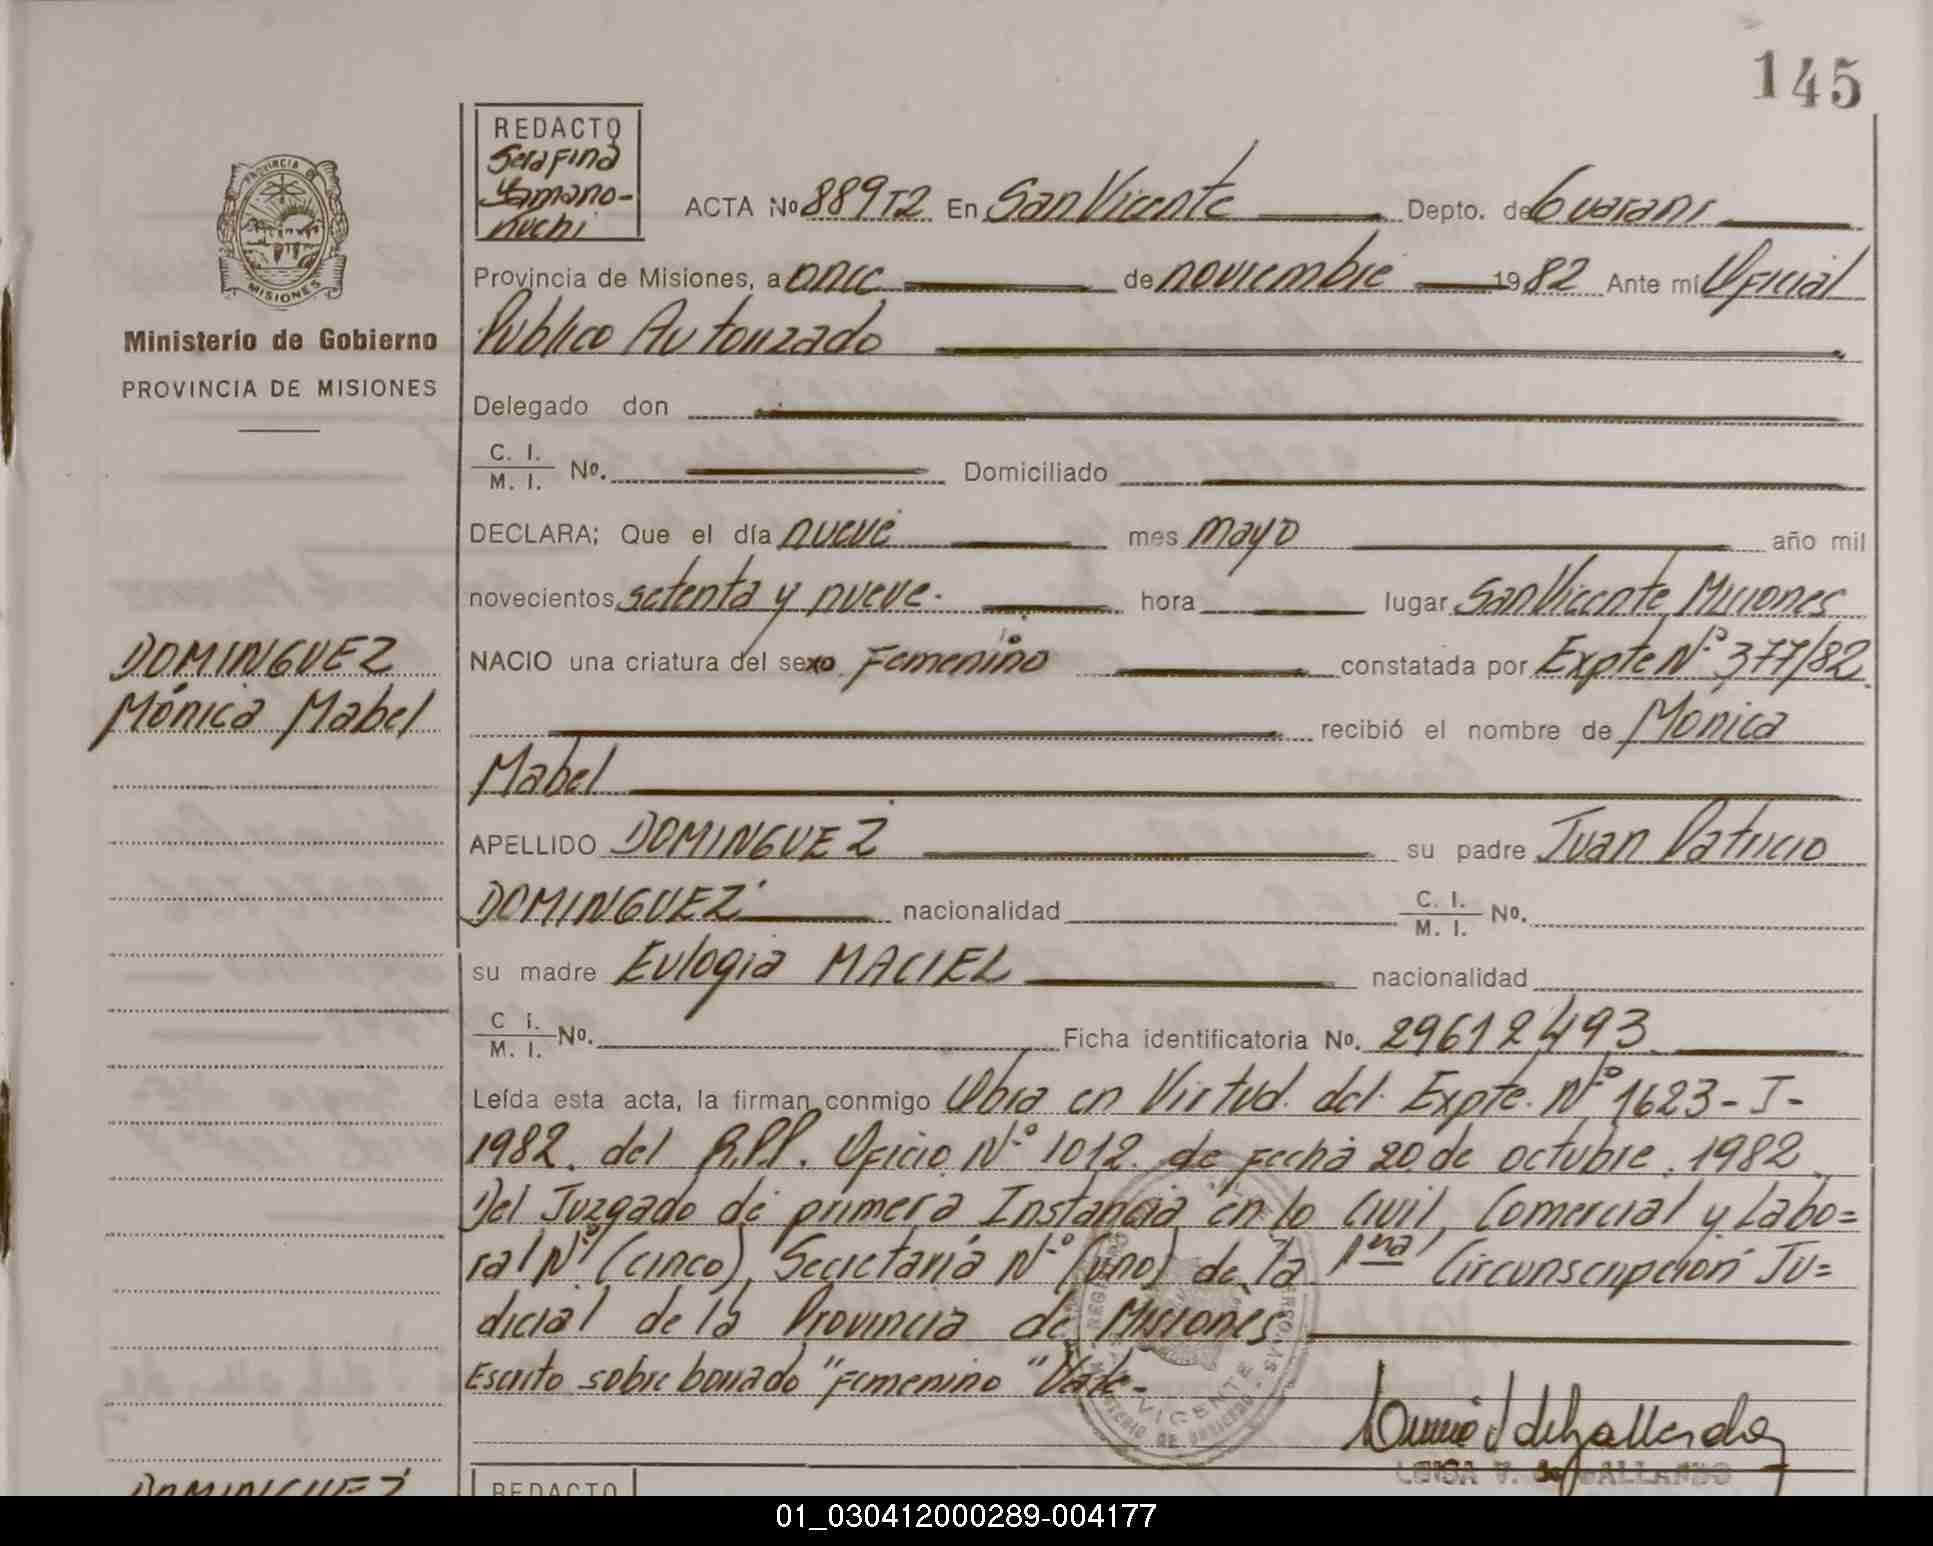 145
REDACTO
Serafina
Yamano-
nuchi
PROVINCIA DE MISIONES
Ministerio de Gobierno
PROVINCIA DE MISIONES
ACTA Nº 889T2 En San Vicente Depto. de Guarani
Provincia de Misiones, a once de noviembre 1982 Ante mi Oficial
Publico Autorizado
Delegado don
C. I. / M. I. Nº. Domiciliado
DECLARA; Que el día nueve mes mayo año mil
novecientos setenta y nueve. hora lugar San Vicente, Misiones
DOMINGUEZ
Mónica Mabel
NACIO una criatura del sexo Femenino constatada por Expte Nº 377/82
recibió el nombre de Mónica
Mabel
APELLIDO DOMINGUEZ su padre Juan Patricio
DOMINGUEZ nacionalidad C. I. / M. I. Nº.
su madre Eulogia MACIEL nacionalidad
C I. / M. I. Nº. Ficha identificatoria Nº. 29612493
Leída esta acta, la firman conmigo Obra en Virtud. del. Expte. Nº 1623-J-
1982. del R.P.P. Oficio Nº 1012. de Fecha 20 de octubre. 1982.
Del Juzgado de primera Instancia en lo Civil, Comercial y Labo=
ral Nº (cinco), Secretaria Nº (uno) de la 1ra Circunscripción Ju=
dicial de la Provincia de Misiones.
Escrito sobre borrado "Femenino" Vale-
VICENTE
LUISA V. de GALLARDO
DOMINGUEZ
REDACTO
01_030412000289-004177